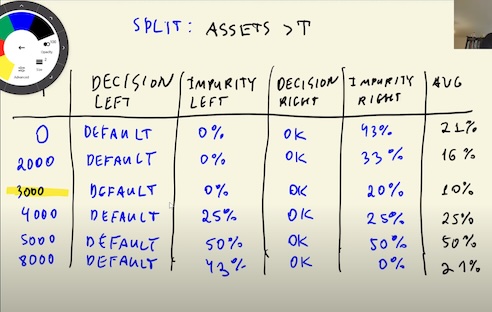 SPLIT: ASSETS >T
DECISION LEFT IMPURITY LEFT DECISION RIGHT IMPURITY RIGHT AVG
0 DEFAULT 0% OK 43% 21%
2000 DEFAULT 0% OK 33% 16%
3000 DEFAULT 0% OK 20% 10%
4000 DEFAULT 25% OK 25% 25%
5000 DEFAULT 50% OK 50% 50%
8000 DEFAULT 43% OK 0% 21%